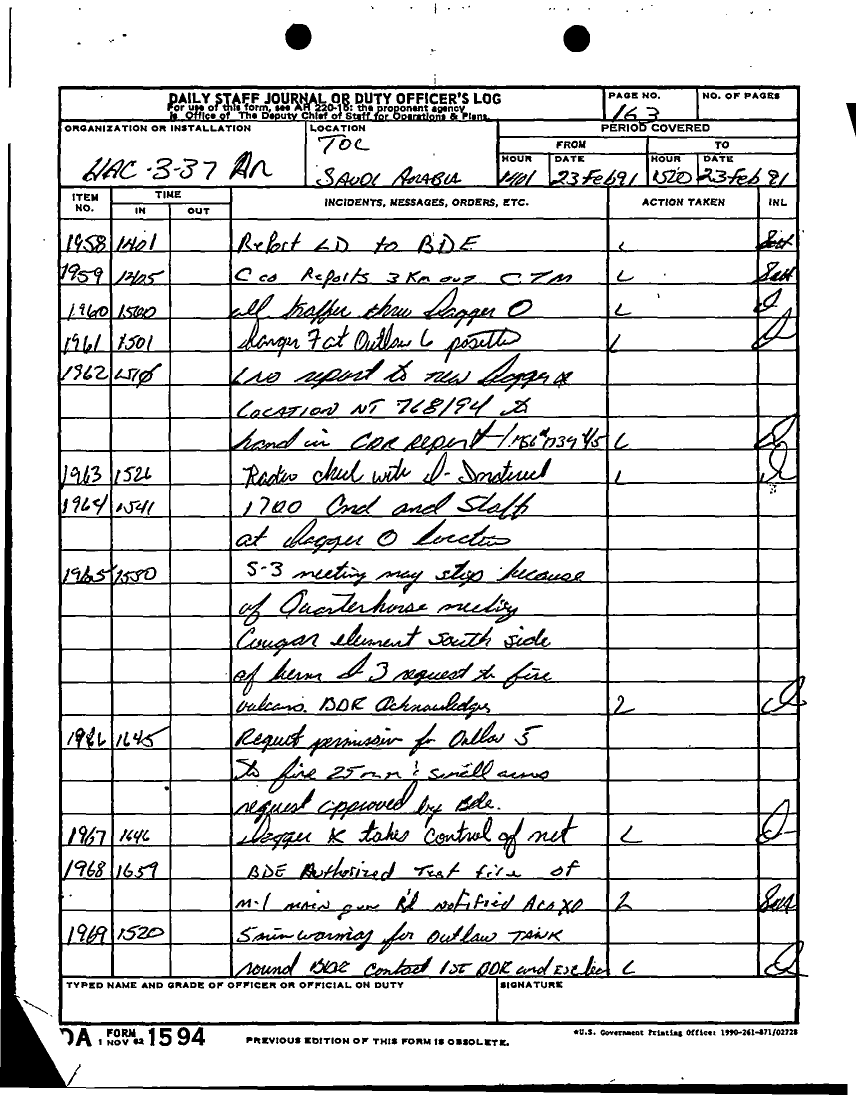 DAILY STAFF JOURNAL OR DUTY OFFICER'S LOG
For use of this form, see AR 220-15: the proponent agency
is Office of The Deputy Chief of Staff for Operations & Plans.
PAGE NO.
163
NO. OF PAGES
ORGANIZATION OR INSTALLATION
HHC-3-37 AR
LOCATION
TOC
SAUDI ARABIA
PERIOD COVERED
FROM
TO
HOUR DATE HOUR DATE
1401 23 Feb 91 1520 23 Feb 91
ITEM NO. TIME IN OUT INCIDENTS, MESSAGES, ORDERS, ETC. ACTION TAKEN INL
1958 1401 Report LD to BDE L
1959 1425 C co Reports 3 Km out CTM L
1960 1500 all traffic thru Dagger O L
1961 1501 Danger 7 at Outlaw 6 L
1962 LNO report to new Dagger
LOCATION NT 768194 to
hand in CDR report L
1963 1526 Radio check with L
1964 1541 1700 Cmd and Staff
at Dagger O location
1965 1550 S-3 meeting may stop because
of Quarterhorse meeting
Cougar element south side
of berm request to fire
vulcans. BDE Acknowledges 2
1966 1645 Request permission for Outlaw 5
to fire 25 mm & small arms
request approved by Bde.
1967 1646 Dagger K takes control of net L
1968 1659 BDE Authorized Test fire of
M-1 main gun R'd notified XO 2
1969 1520 5 min warning for outlaw TANK
round BDE contact 1st L
TYPED NAME AND GRADE OF OFFICER OR OFFICIAL ON DUTY
SIGNATURE
DA FORM 1 NOV 62 1594
PREVIOUS EDITION OF THIS FORM IS OBSOLETE.
*U.S. Government Printing Office: 1990-261-871/02728